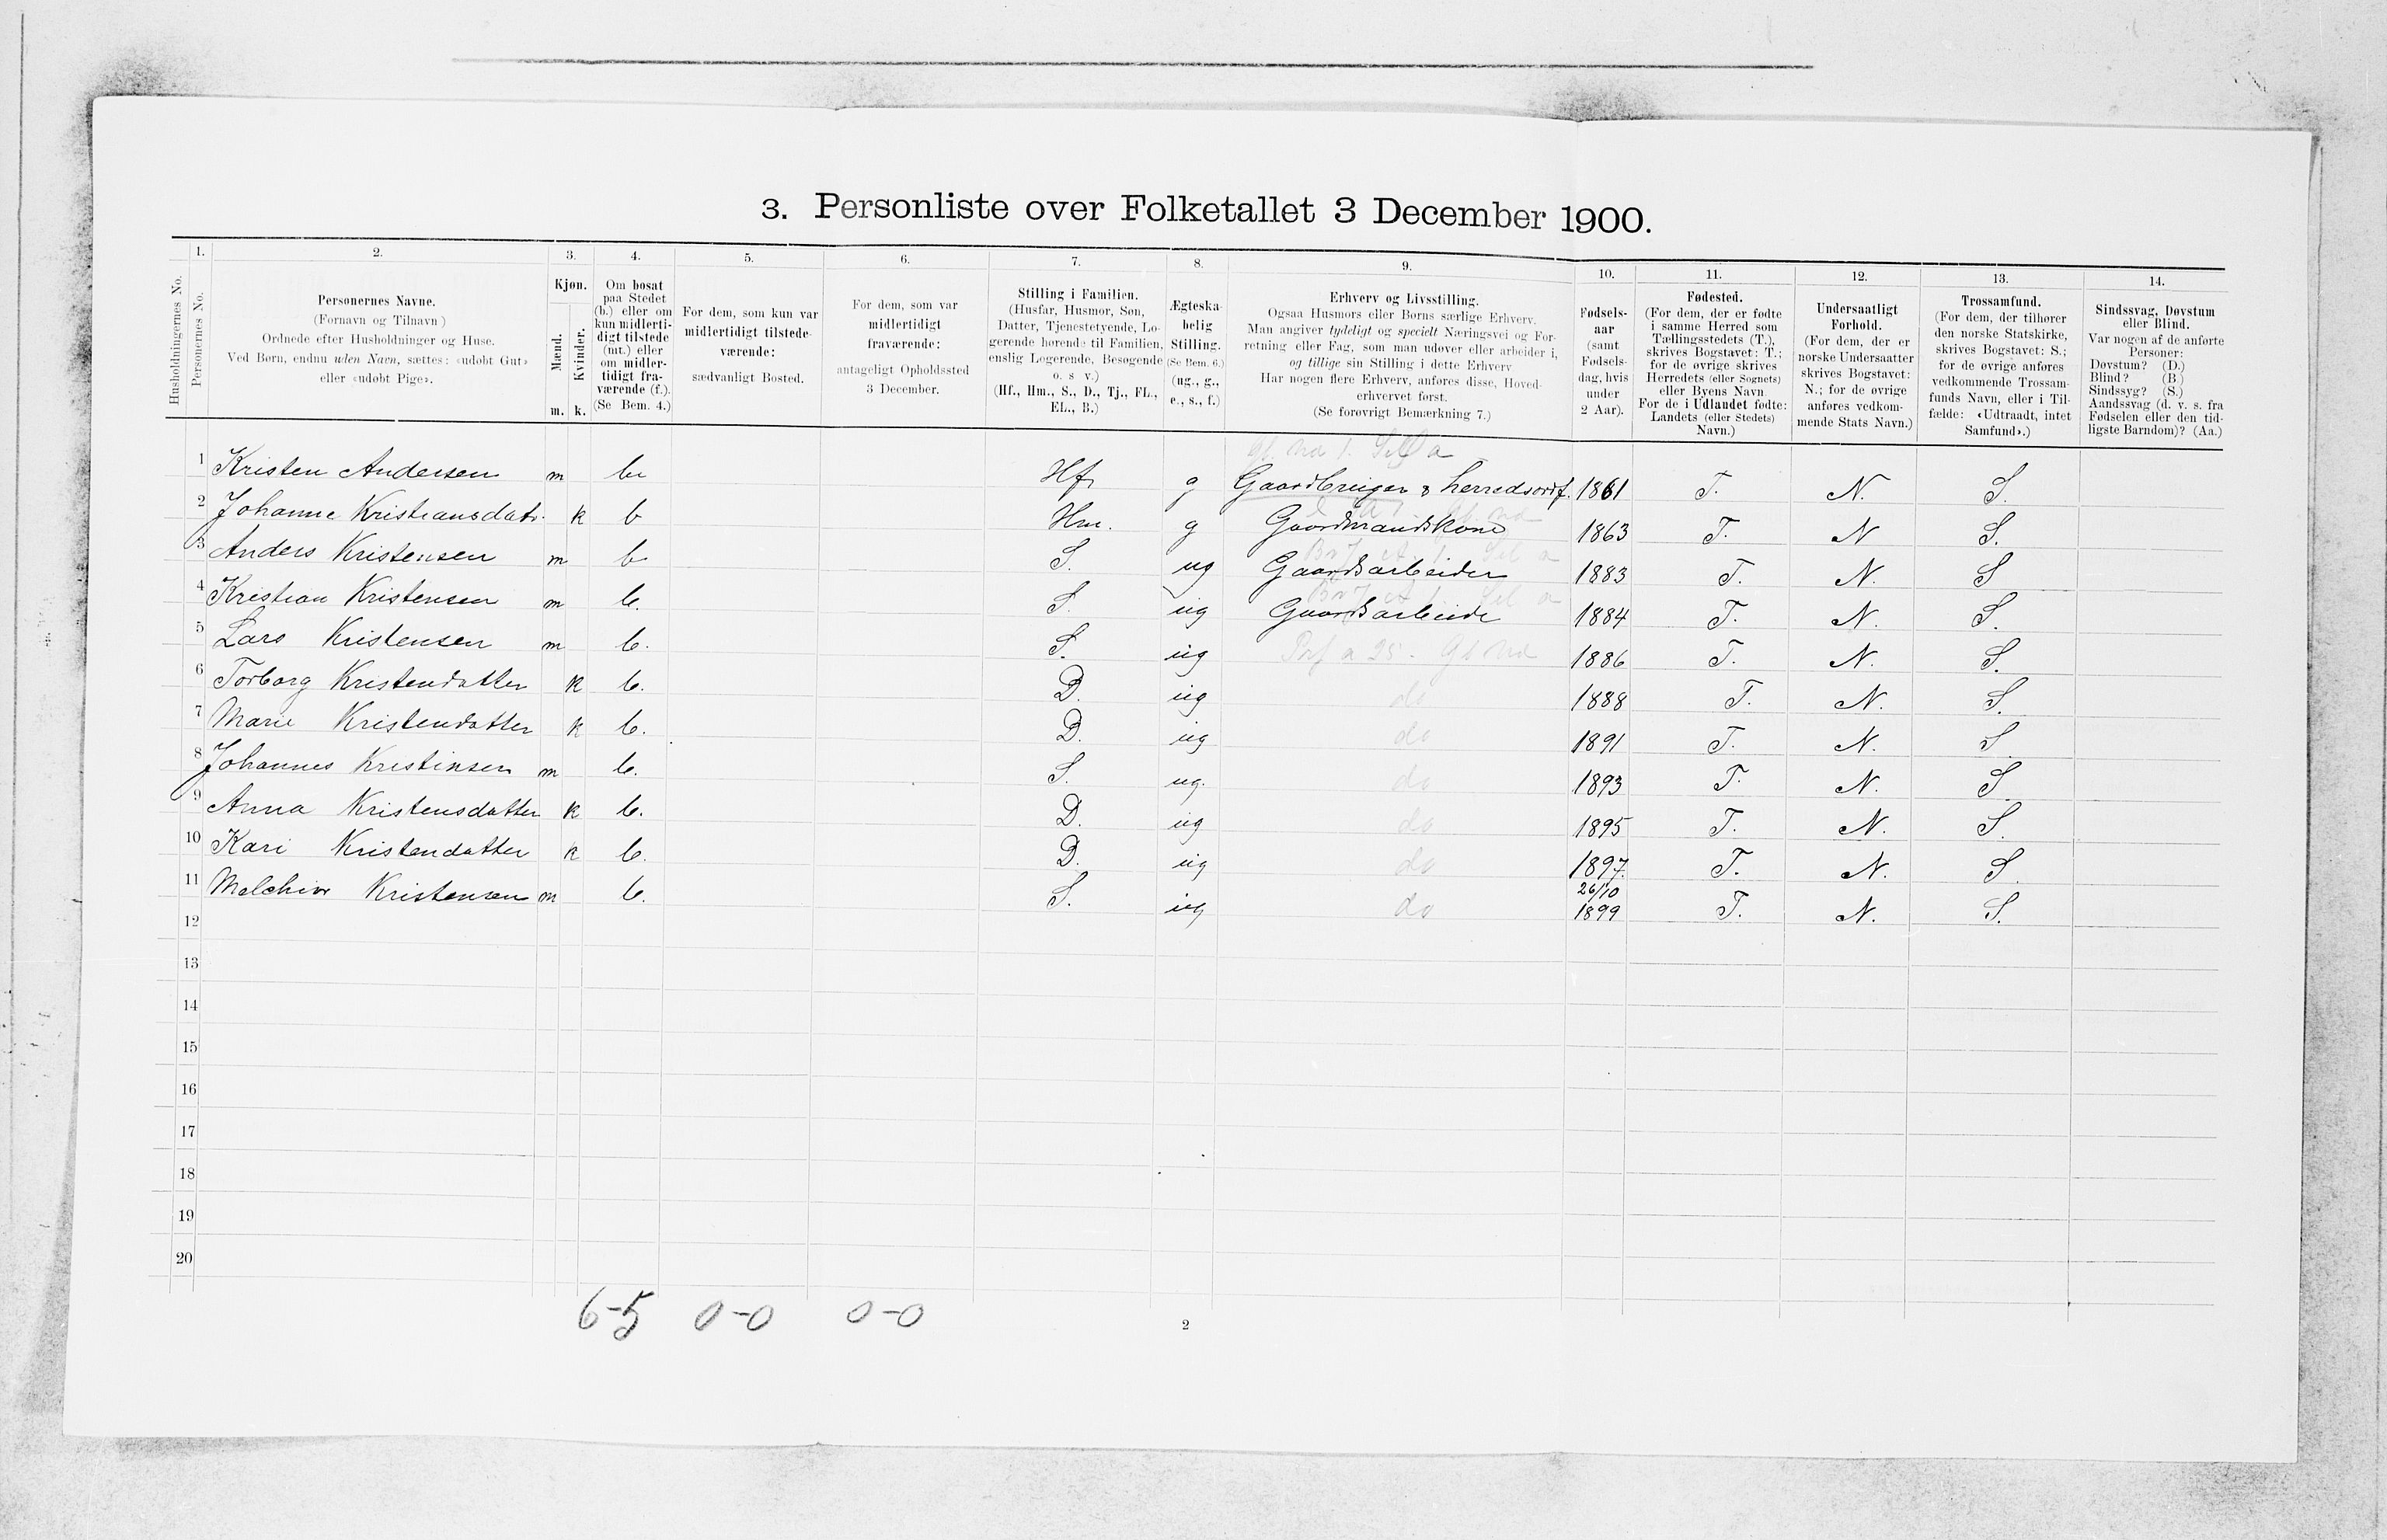 3. Personliste over Folketallet 3 December 1900.
1. 2. 3. 4. 5. 6. 7. 8. 9. 10. 11. 12. 13. 14.
Husholdningernes No.
Personernes No.
Personernes Navne.
(Fornavn og Tilnavn)
Ordnede efter Husholdninger og Huse.
Ved Børn, endnu uden Navn, sættes: «udøbt Gut»
eller «udøbt Pige».
Kjøn.
Mænd.
Kvinder.
m. k.
Om bosat
paa Stedet
(b.) eller om
kun midlerti-
digt tilstede
(mt.) eller
om midler-
tidigt fra-
værende (f.).
(Se Bem. 4.)
For dem, som kun var
midlertidigt tilstede-
værende:
sædvanligt Bosted.
For dem, som var
midlertidigt
fraværende:
antageligt Opholdssted
3 December.
Stilling i Familien.
(Husfar, Husmor, Søn,
Datter, Tjenestetyende, Lo-
gerende hørende til Familien,
enslig Logerende, Besøgende
o. s v.)
(Hf., Hm., S., D., Tj., FL.,
EL., B.)
Ægteska-
belig
Stilling.
(Se Bem. 6.)
(ug., g.,
e., s., f.)
Erhverv og Livsstilling.
Ogsaa Husmors eller Børns særlige Erhverv.
Man angiver tydeligt og specielt Næringsvei og For-
retning eller Fag, som man udøver eller arbeider i,
og tillige sin Stilling i dette Erhverv.
Har nogen flere Erhverv, anføres disse, Hoved-
erhvervet først.
(Se forøvrigt Bemærkning 7.)
Fødsels-
aar
(samt
Fødsels-
dag, hvis
under
2 Aar).
Fødested.
(For dem, der er fødte
i samme Herred som
Tællingsstedets (T.),
skrives Bogstavet: T.;
for de øvrige skrives
Herredets (eller Sognets)
eller Byens Navn.
For de i Udlandet fødte:
Landets (eller Stedets)
Navn.)
Undersaatligt
Forhold.
(For dem, der er
norske Undersaatter
skrives Bogstavet:
N.; for de øvrige
anføres vedkom-
mende Stats Navn.)
Trossamfund.
(For dem, der tilhører
den norske Statskirke,
skrives Bogstavet: S.;
for de øvrige anføres
vedkommende Trossam-
funds Navn, eller i Til-
fælde: «Udtraadt, intet
Samfund».)
Sindssvag, Døvstum
eller Blind.
Var nogen af de anførte
Personer:
Døvstum? (D.)
Blind? (B.)
Sindssyg? (S.)
Aandssvag (d. v. s. fra
Fødselen eller den tid-
ligste Barndom)? (Aa.)
1 Kristen Andersen m b Hf. g Gaardbruger & herredsordf. 1861 T. N. S.
2 Johanne Kristiansdatr. k b Hm. g Gaardmandskone 1863 T. N S.
3 Anders Kristensen m b S. ug Gaardsarbeider 1883 T. N. S
4 Kristian Kristensen m b. S. ug Gaardsarbeide 1884 T. N. S.
5 Lars Kristensen m b. S. ug 1886 T. N. S.
6 Torborg Kristendatter k b. D. ug do 1888 T. N. S.
7 Marie Kristendatter k b. D. ug do 1891 T. N. S
8 Johannes Kristensen m b. S. ug. do 1893 T. N. S
9 Anna Kristensdatter k b. D. ug do 1895 T. N. S.
10 Kari Kristendatter k b. D. ug do 1897. T. N. S
11 Melchior Kristensen m b. S. ug do 26/10 1899 T. N. S.
12
13
14
15
16
17
18
19
20
6-5 0-0 0-0
2